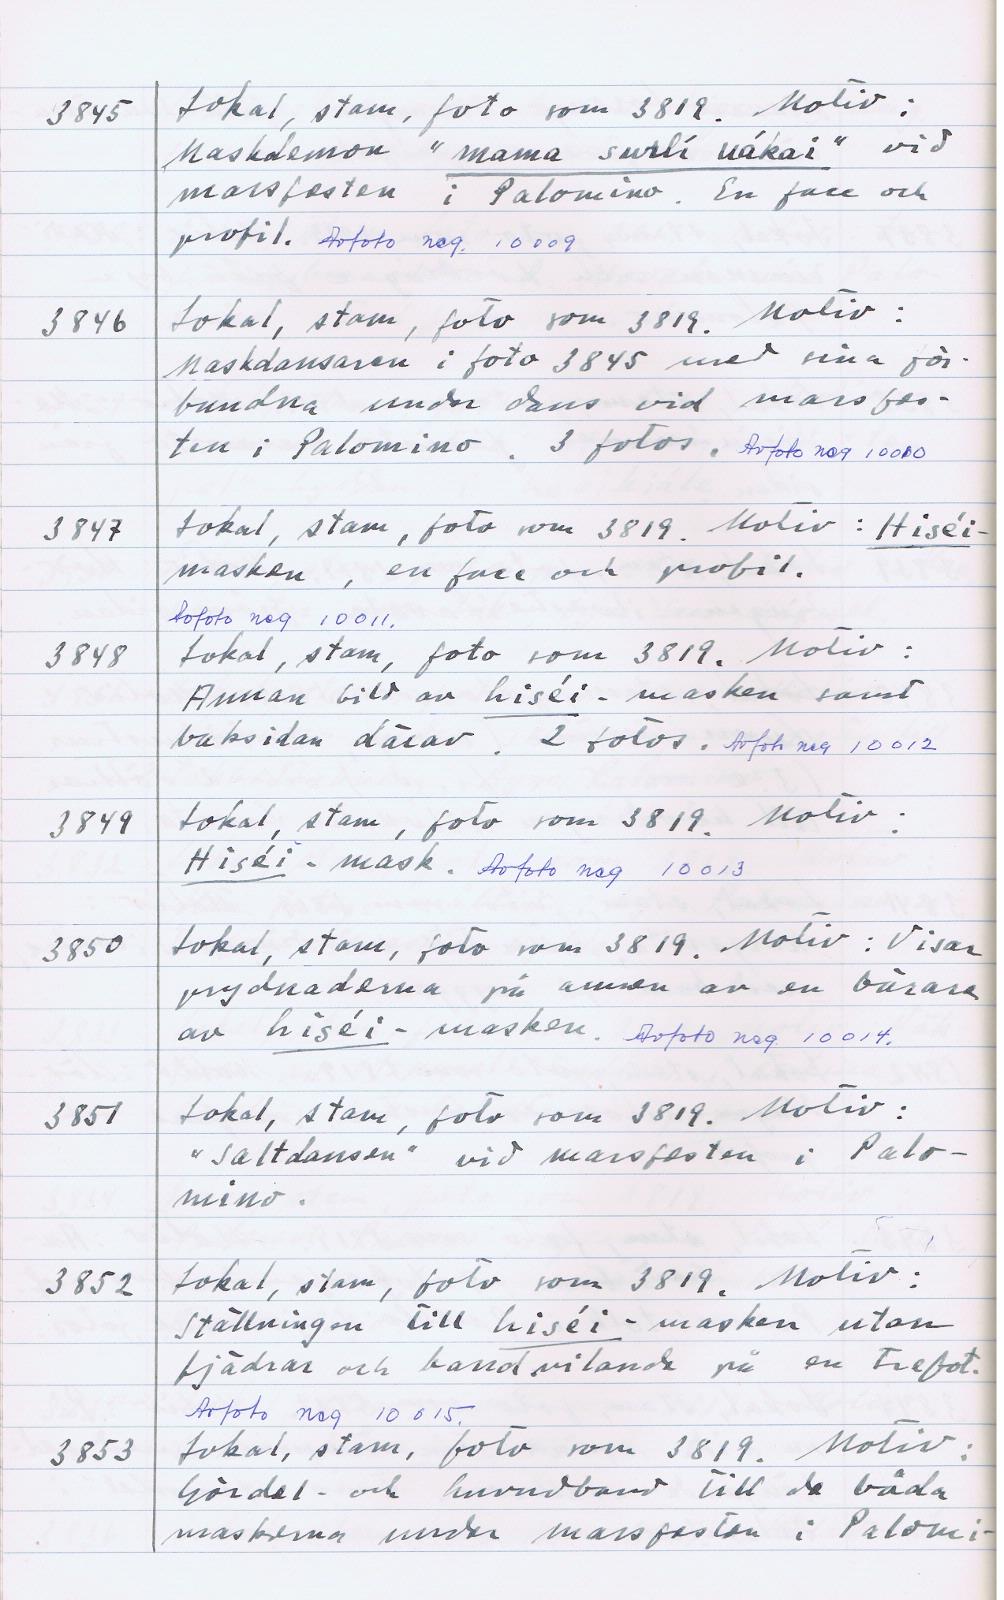 3845 Lokal, stam, foto som 3819. Motiv:
Maskdemon "mama surlí uákai" vid
marsfesten i Palomino. En face och
profil. Avfoto neg. 10009
3846 Lokal, stam, foto som 3819. Motiv:
Maskdansaren i foto 3845 med sina för-
bundna under dans vid marsfes-
ten i Palomino. 3 fotos. Avfoto neg 10010
3847 Lokal, stam, foto som 3819. Motiv: Hiséi-
masken, en face och profil.
Avfoto neg 10011.
3848 Lokal, stam, foto som 3819. Motiv:
Annan bild av hiséi-masken samt
baksidan därav. 2 fotos. Avfoto neg 10012
3849 Lokal, stam, foto som 3819. Motiv:
Hiséi-mask. Avfoto neg 10013
3850 Lokal, stam, foto som 3819. Motiv: Visar
prydnaderna på armen av en bärare
av hiséi-masken. Avfoto neg. 10014.
3851 Lokal, stam, foto som 3819. Motiv:
"Saltdansen" vid marsfesten i Palo-
mino.
3852 Lokal, stam, foto som 3819. Motiv:
Ställningen till hiséi-masken utan
fjädrar och band vilande på en trefot.
Avfoto neg 10015.
3853 Lokal, stam, foto som 3819. Motiv:
Gördel- och huvudband till de båda
maskerna under marsfesten i Palomi-